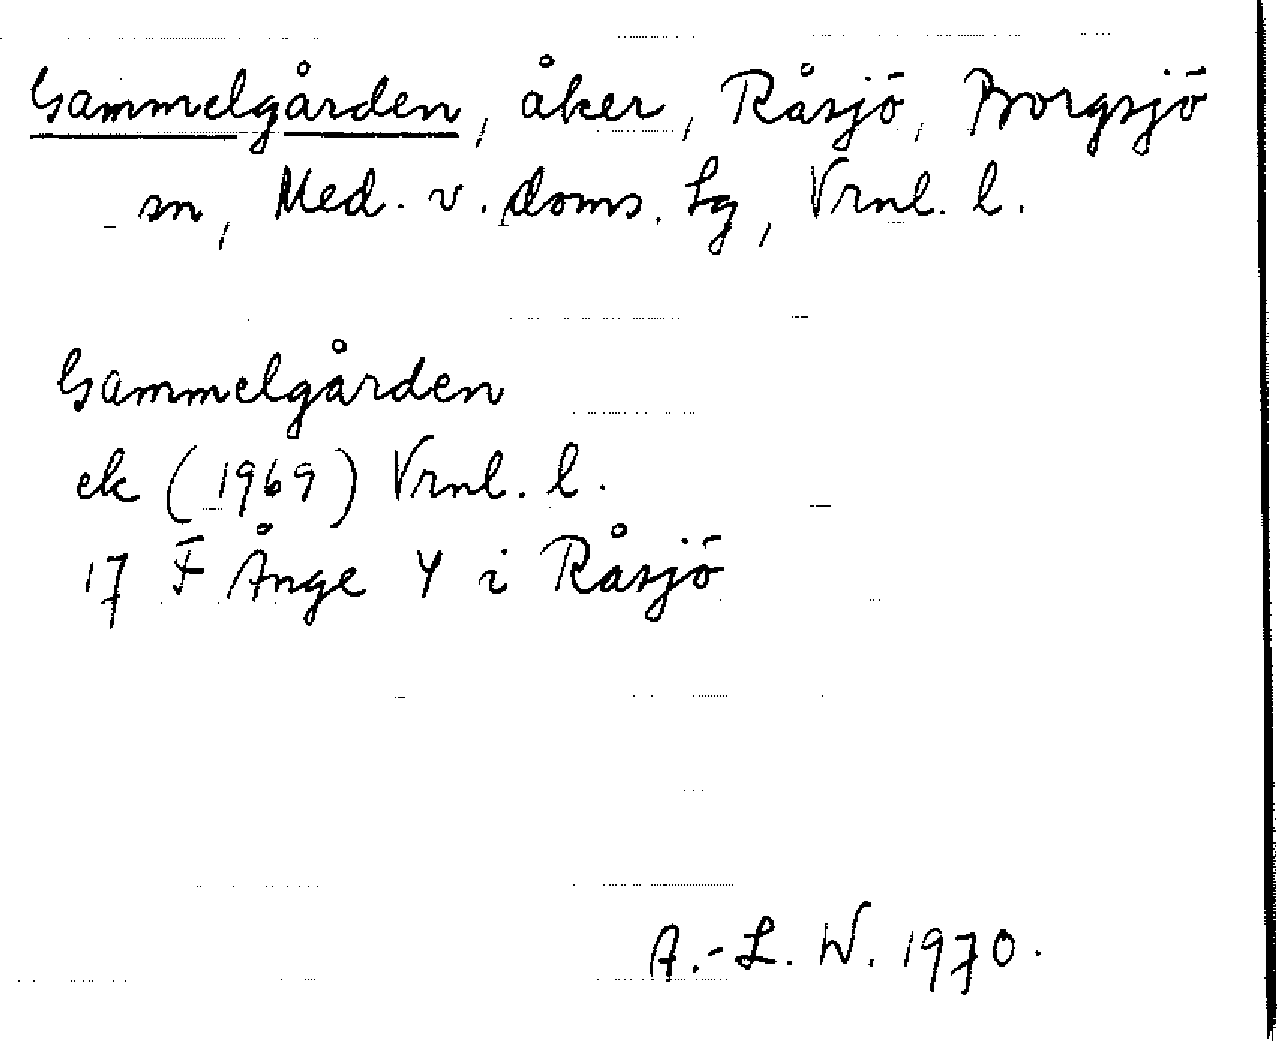 Gammelgården, åker, Råsjö, Borgsjö
sn, Med. v. doms. lg, Vrnl. l.
Gammelgården
ek (1969) Vrnl. l.
17 F Ånge Y i Råsjö
A.-L. W. 1970.